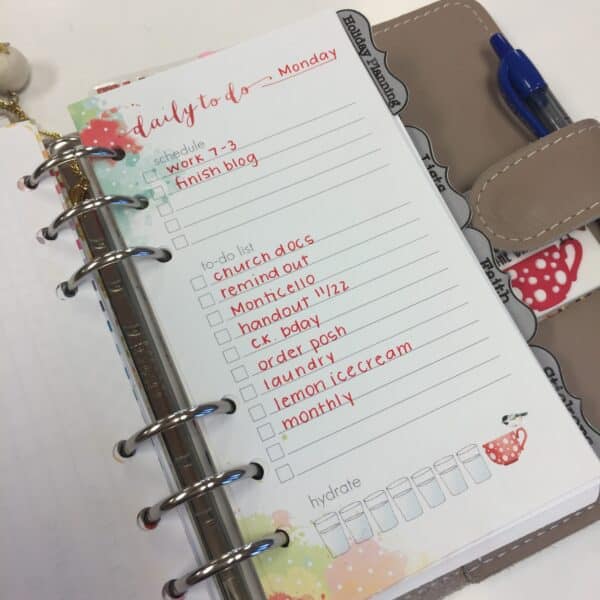 daily to do Monday
schedule
work 7-3
finish blog
to-do list
church docs
remind out
Monticello
handout 11/22
c.k. bday
order posh
laundry
lemon icecream
monthly
hydrate
Holiday Planning
Lists
Faith